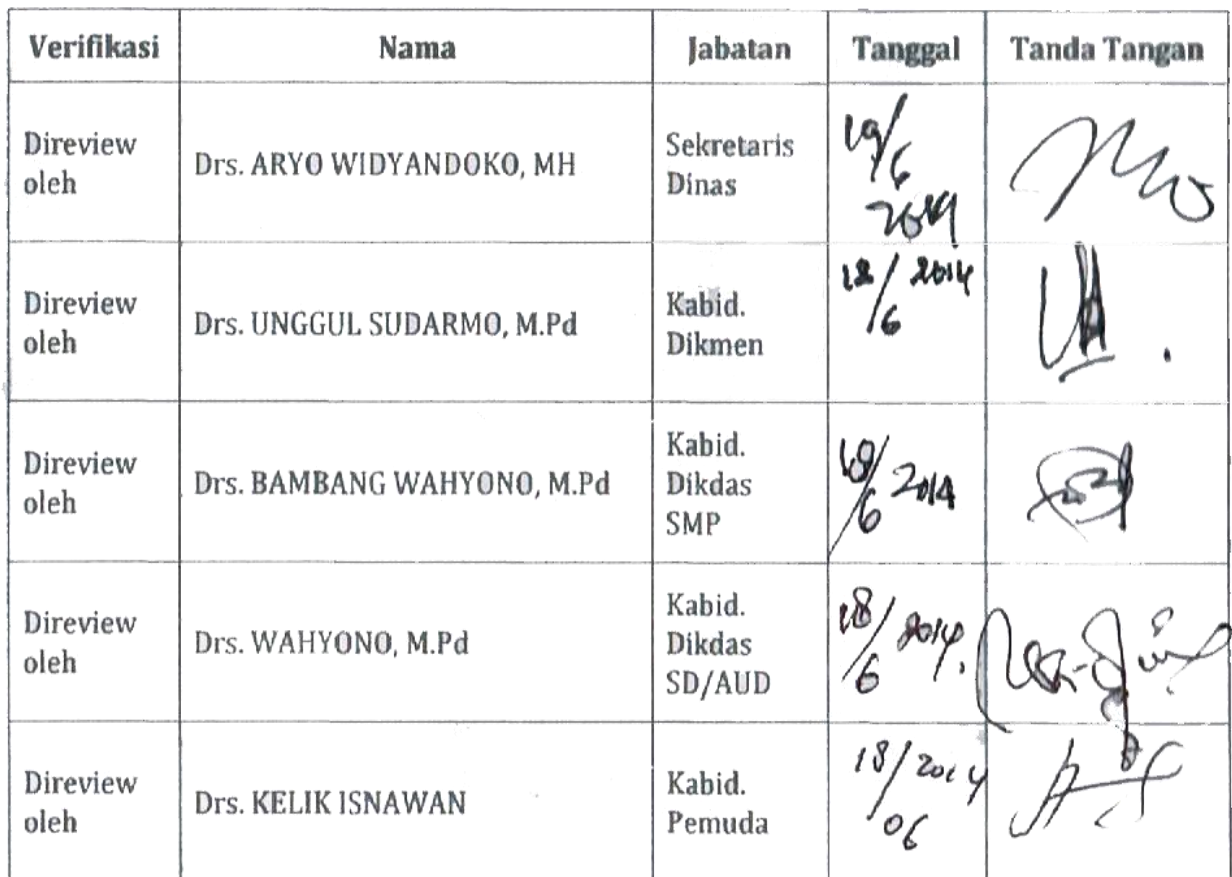 Verifikasi Nama Jabatan Tanggal Tanda Tangan
Direview oleh Drs. ARYO WIDYANDOKO, MH Sekretaris Dinas 19/6 2014
Direview oleh Drs. UNGGUL SUDARMO, M.Pd Kabid. Dikmen 18/6 2014
Direview oleh Drs. BAMBANG WAHYONO, M.Pd Kabid. Dikdas SMP 18/6 2014
Direview oleh Drs. WAHYONO, M.Pd Kabid. Dikdas SD/AUD 18/6 2014.
Direview oleh Drs. KELIK ISNAWAN Kabid. Pemuda 18/06 2014